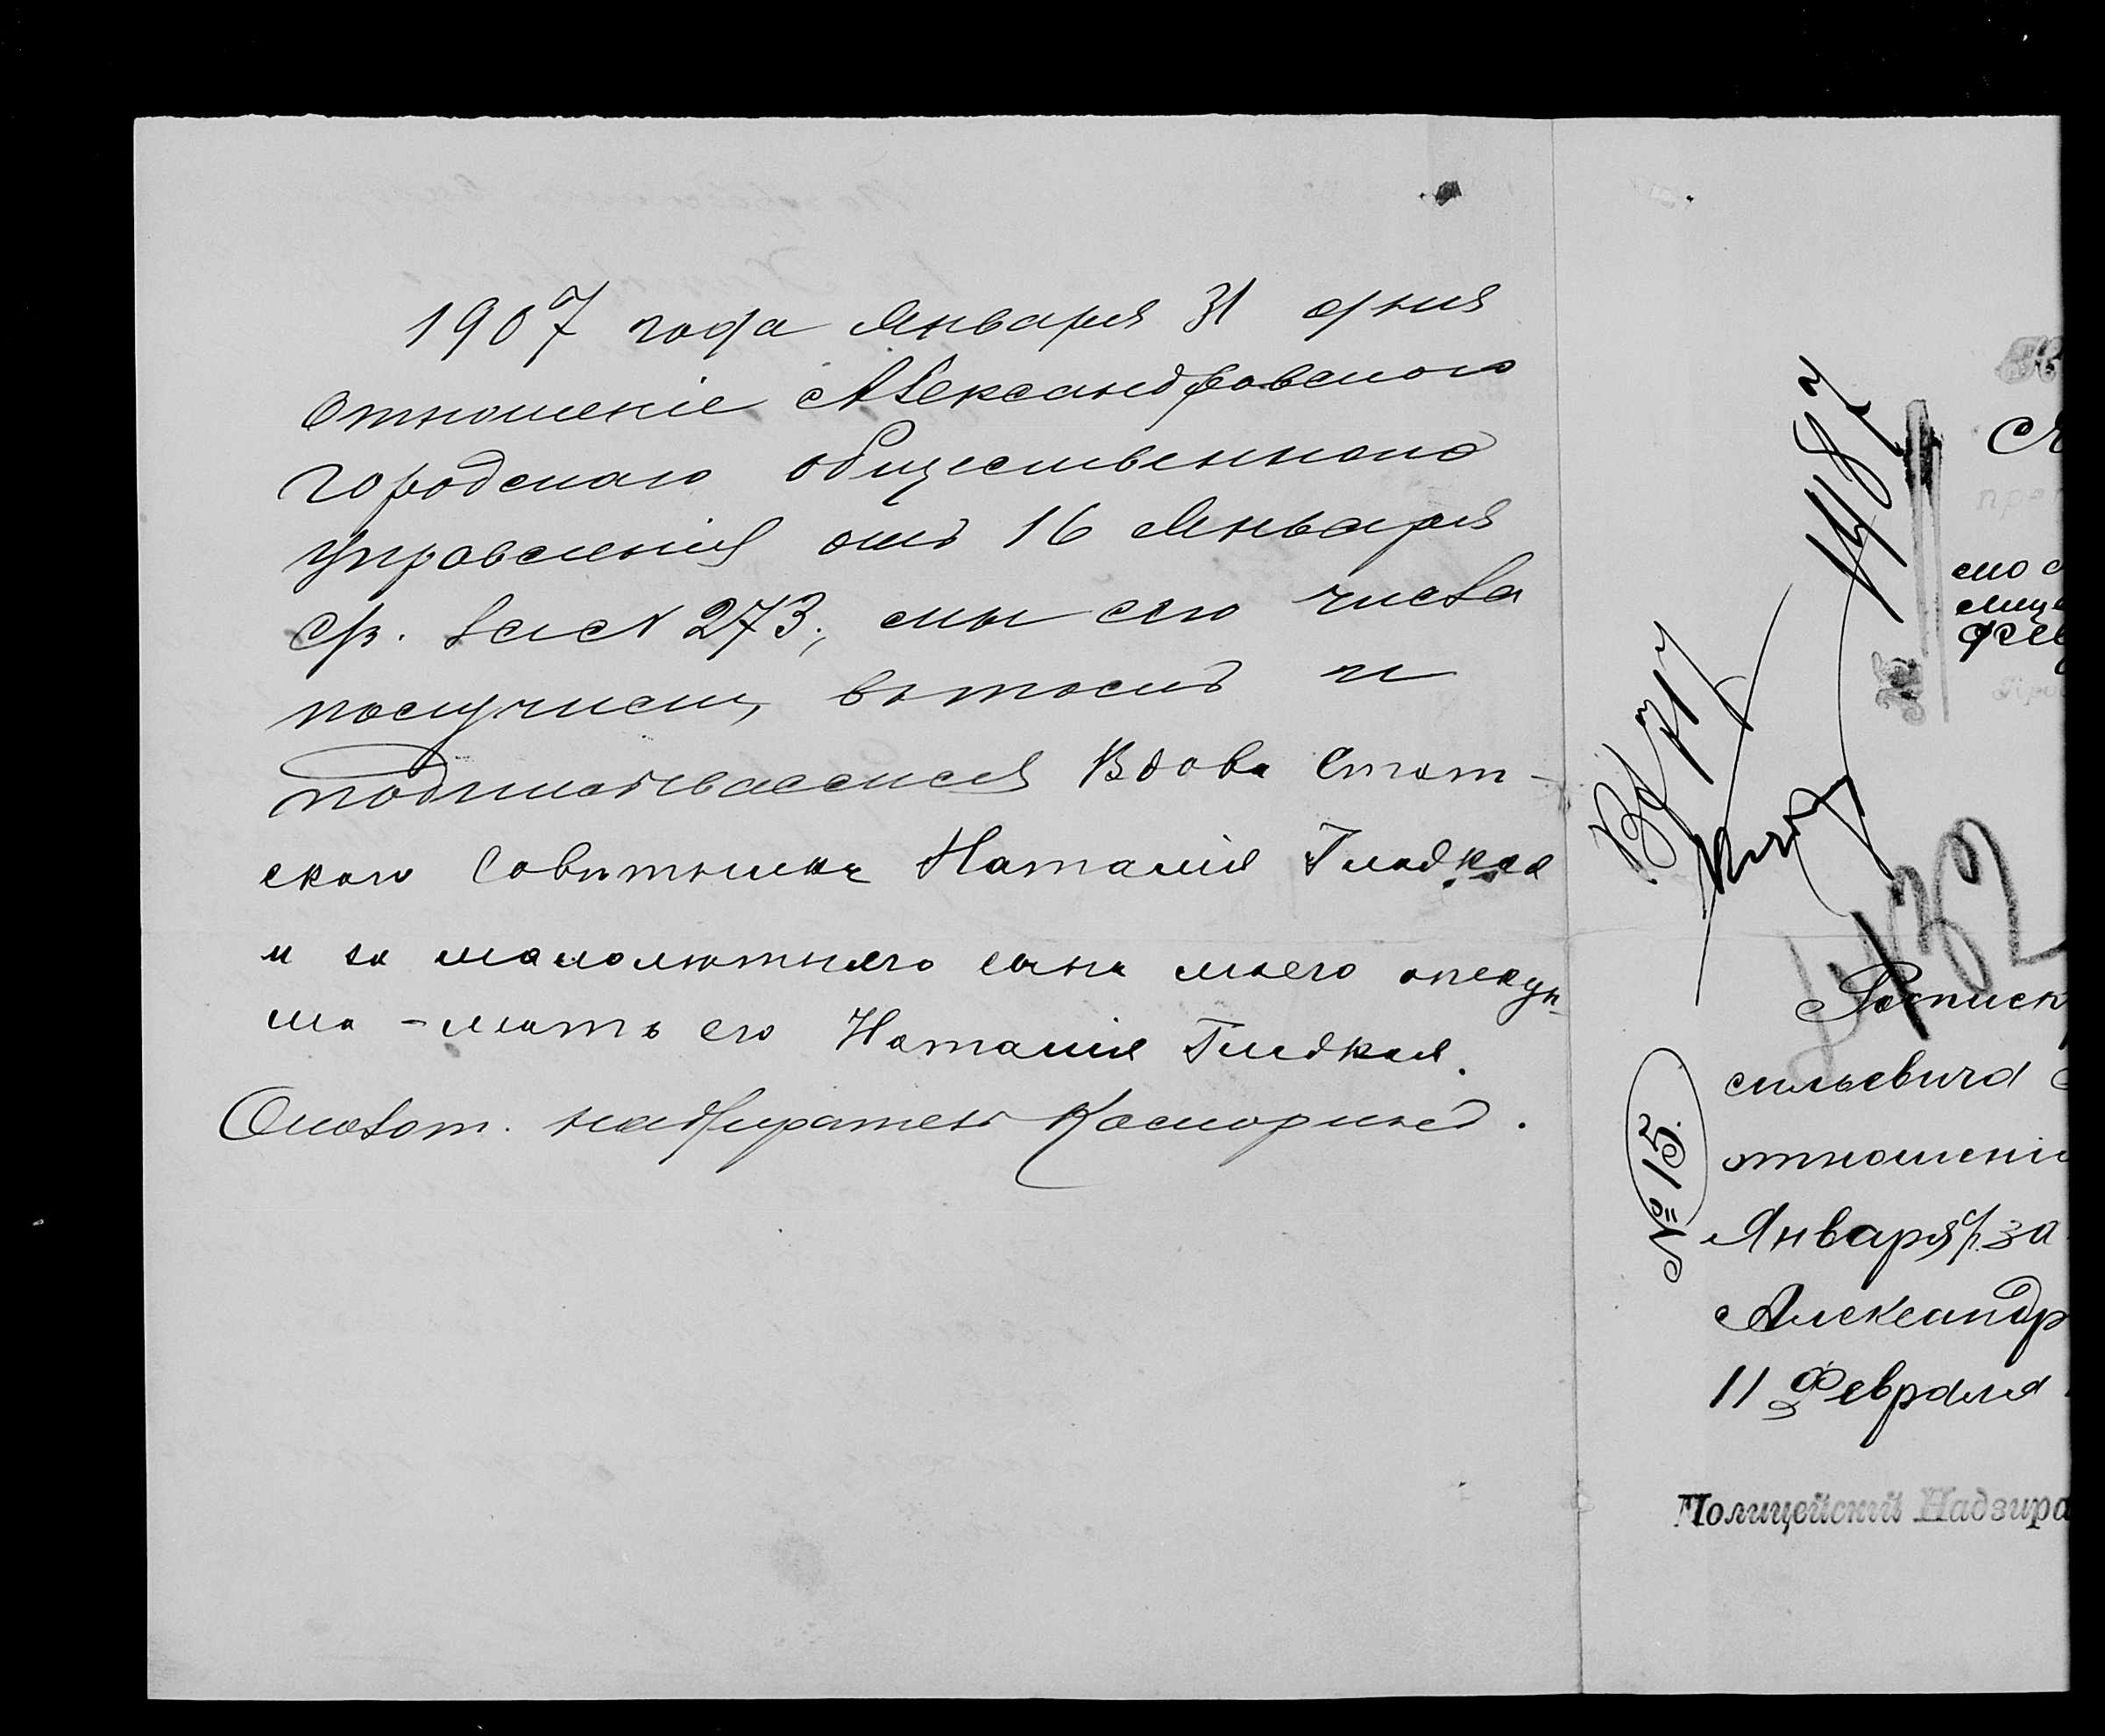 1907 года Января 31 дня
отношеніе Александровскаго
городскаго общественнаго
управленія отъ 16 Января
с/г. за № 273, мы сего числа
получили, въ томъ и
подписываемся Вдова Стат-
скаго Совѣтника Наталія Гладкая
и за малолѣтняго сына моего опекун-
ша - мать его Наталія Гладкая.
Околот. надзиратель
1487
№
Вх 717
1432
Росписк
сильевича
отношеніе
Января с/г. за
Александр
11 Февраля
№ 15.
Полицейскій Надзира